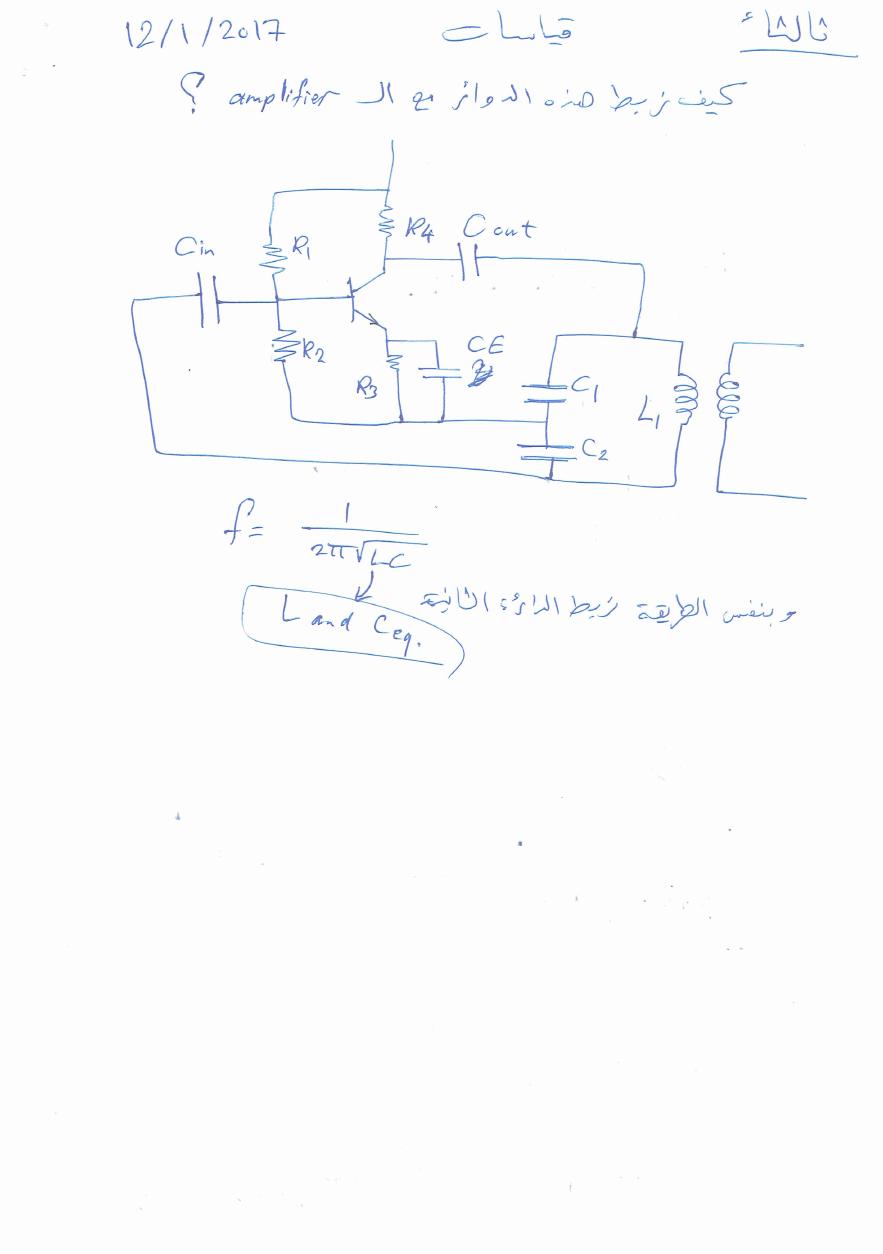 ثالثاء قياسات 12/1/2017
كيف نربط هذه الدوائر مع الـ amplifier ؟
R4 Cout
Cin R1
R2 CE
R3 C1 L1
C2
f = 1 / 2π√LC
وبنفس الطريقة نربط الدائرة الثانية
L and Ceq.